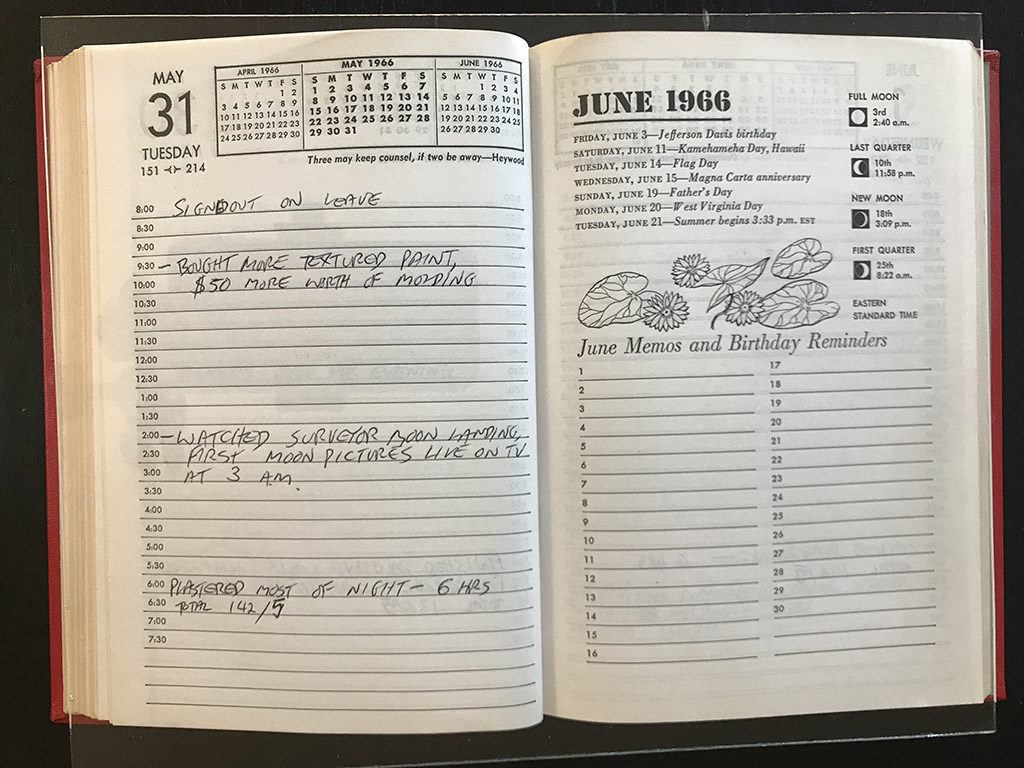 MAY
31
TUESDAY
151 ⤙ 214
APRIL 1966
S M T W T F S
1 2
3 4 5 6 7 8 9
10 11 12 13 14 15 16
17 18 19 20 21 22 23
24 25 26 27 28 29 30
MAY 1966
S M T W T F S
1 2 3 4 5 6 7
8 9 10 11 12 13 14
15 16 17 18 19 20 21
22 23 24 25 26 27 28
29 30 31
JUNE 1966
S M T W T F S
1 2 3 4
5 6 7 8 9 10 11
12 13 14 15 16 17 18
19 20 21 22 23 24 25
26 27 28 29 30
Three may keep counsel, if two be away—Heywood
8:00 SIGNEDOUT ON LEAVE
8:30
9:00
9:30 — BOUGHT MORE TEXTURED PAINT,
10:00 $50 MORE WORTH OF MOLDING
10:30
11:00
11:30
12:00
12:30
1:00
1:30
2:00 — WATCHED SURVEYOR MOON LANDING,
2:30 FIRST MOON PICTURES LIVE ON TV
3:00 AT 3 A.M.
3:30
4:00
4:30
5:00
5:30
6:00 PLASTERED MOST OF NIGHT — 6 HRS
6:30 TOTAL 142/5
7:00
7:30
JUNE 1966
FRIDAY, JUNE 3—Jefferson Davis birthday
SATURDAY, JUNE 11—Kamehameha Day, Hawaii
TUESDAY, JUNE 14—Flag Day
WEDNESDAY, JUNE 15—Magna Carta anniversary
SUNDAY, JUNE 19—Father's Day
MONDAY, JUNE 20—West Virginia Day
TUESDAY, JUNE 21—Summer begins 3:33 p.m. EST
FULL MOON
3rd
2:40 a.m.
LAST QUARTER
10th
11:58 p.m.
NEW MOON
18th
3:09 p.m.
FIRST QUARTER
25th
8:22 a.m.
EASTERN
STANDARD TIME
June Memos and Birthday Reminders
1
2
3
4
5
6
7
8
9
10
11
12
13
14
15
16
17
18
19
20
21
22
23
24
25
26
27
28
29
30